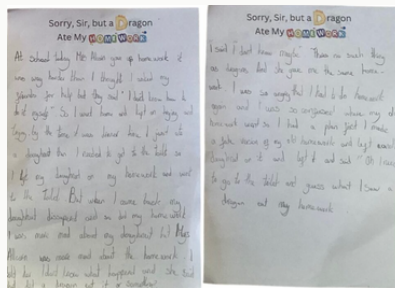 Sorry, Sir, but a Dragon
Ate My HOMEWORK
At school today Ms Alison gave us homework it
was way harder than I thought I asked my
for help but they said "I had to
do it myself". So I went home and kept on trying and
trying by the time I was almost done I just ate
a doughnut then I needed to go to the toilet so
I left my doughnut on my homework and went
to the toilet. But when I came back my
doughnut disappeared and so did my homework.
I was more mad about my doughnut but Ms
Alison was more mad about the homework. I
told her I don't know what happened and she said
did a dragon eat it or something
Sorry, Sir, but a Dragon
Ate My HOMEWORK
I said "I don't know maybe" There no such thing
as dragons, and she gave me the same home-
work. I was so angry that I had to do homework
again and I was so suspicious where my
homework went so I had a plan I made
a fake version of my old homework and left
doughnut on it and left and said "Oh I
to go to the toilet and guess what I saw a
dragon eat my homework